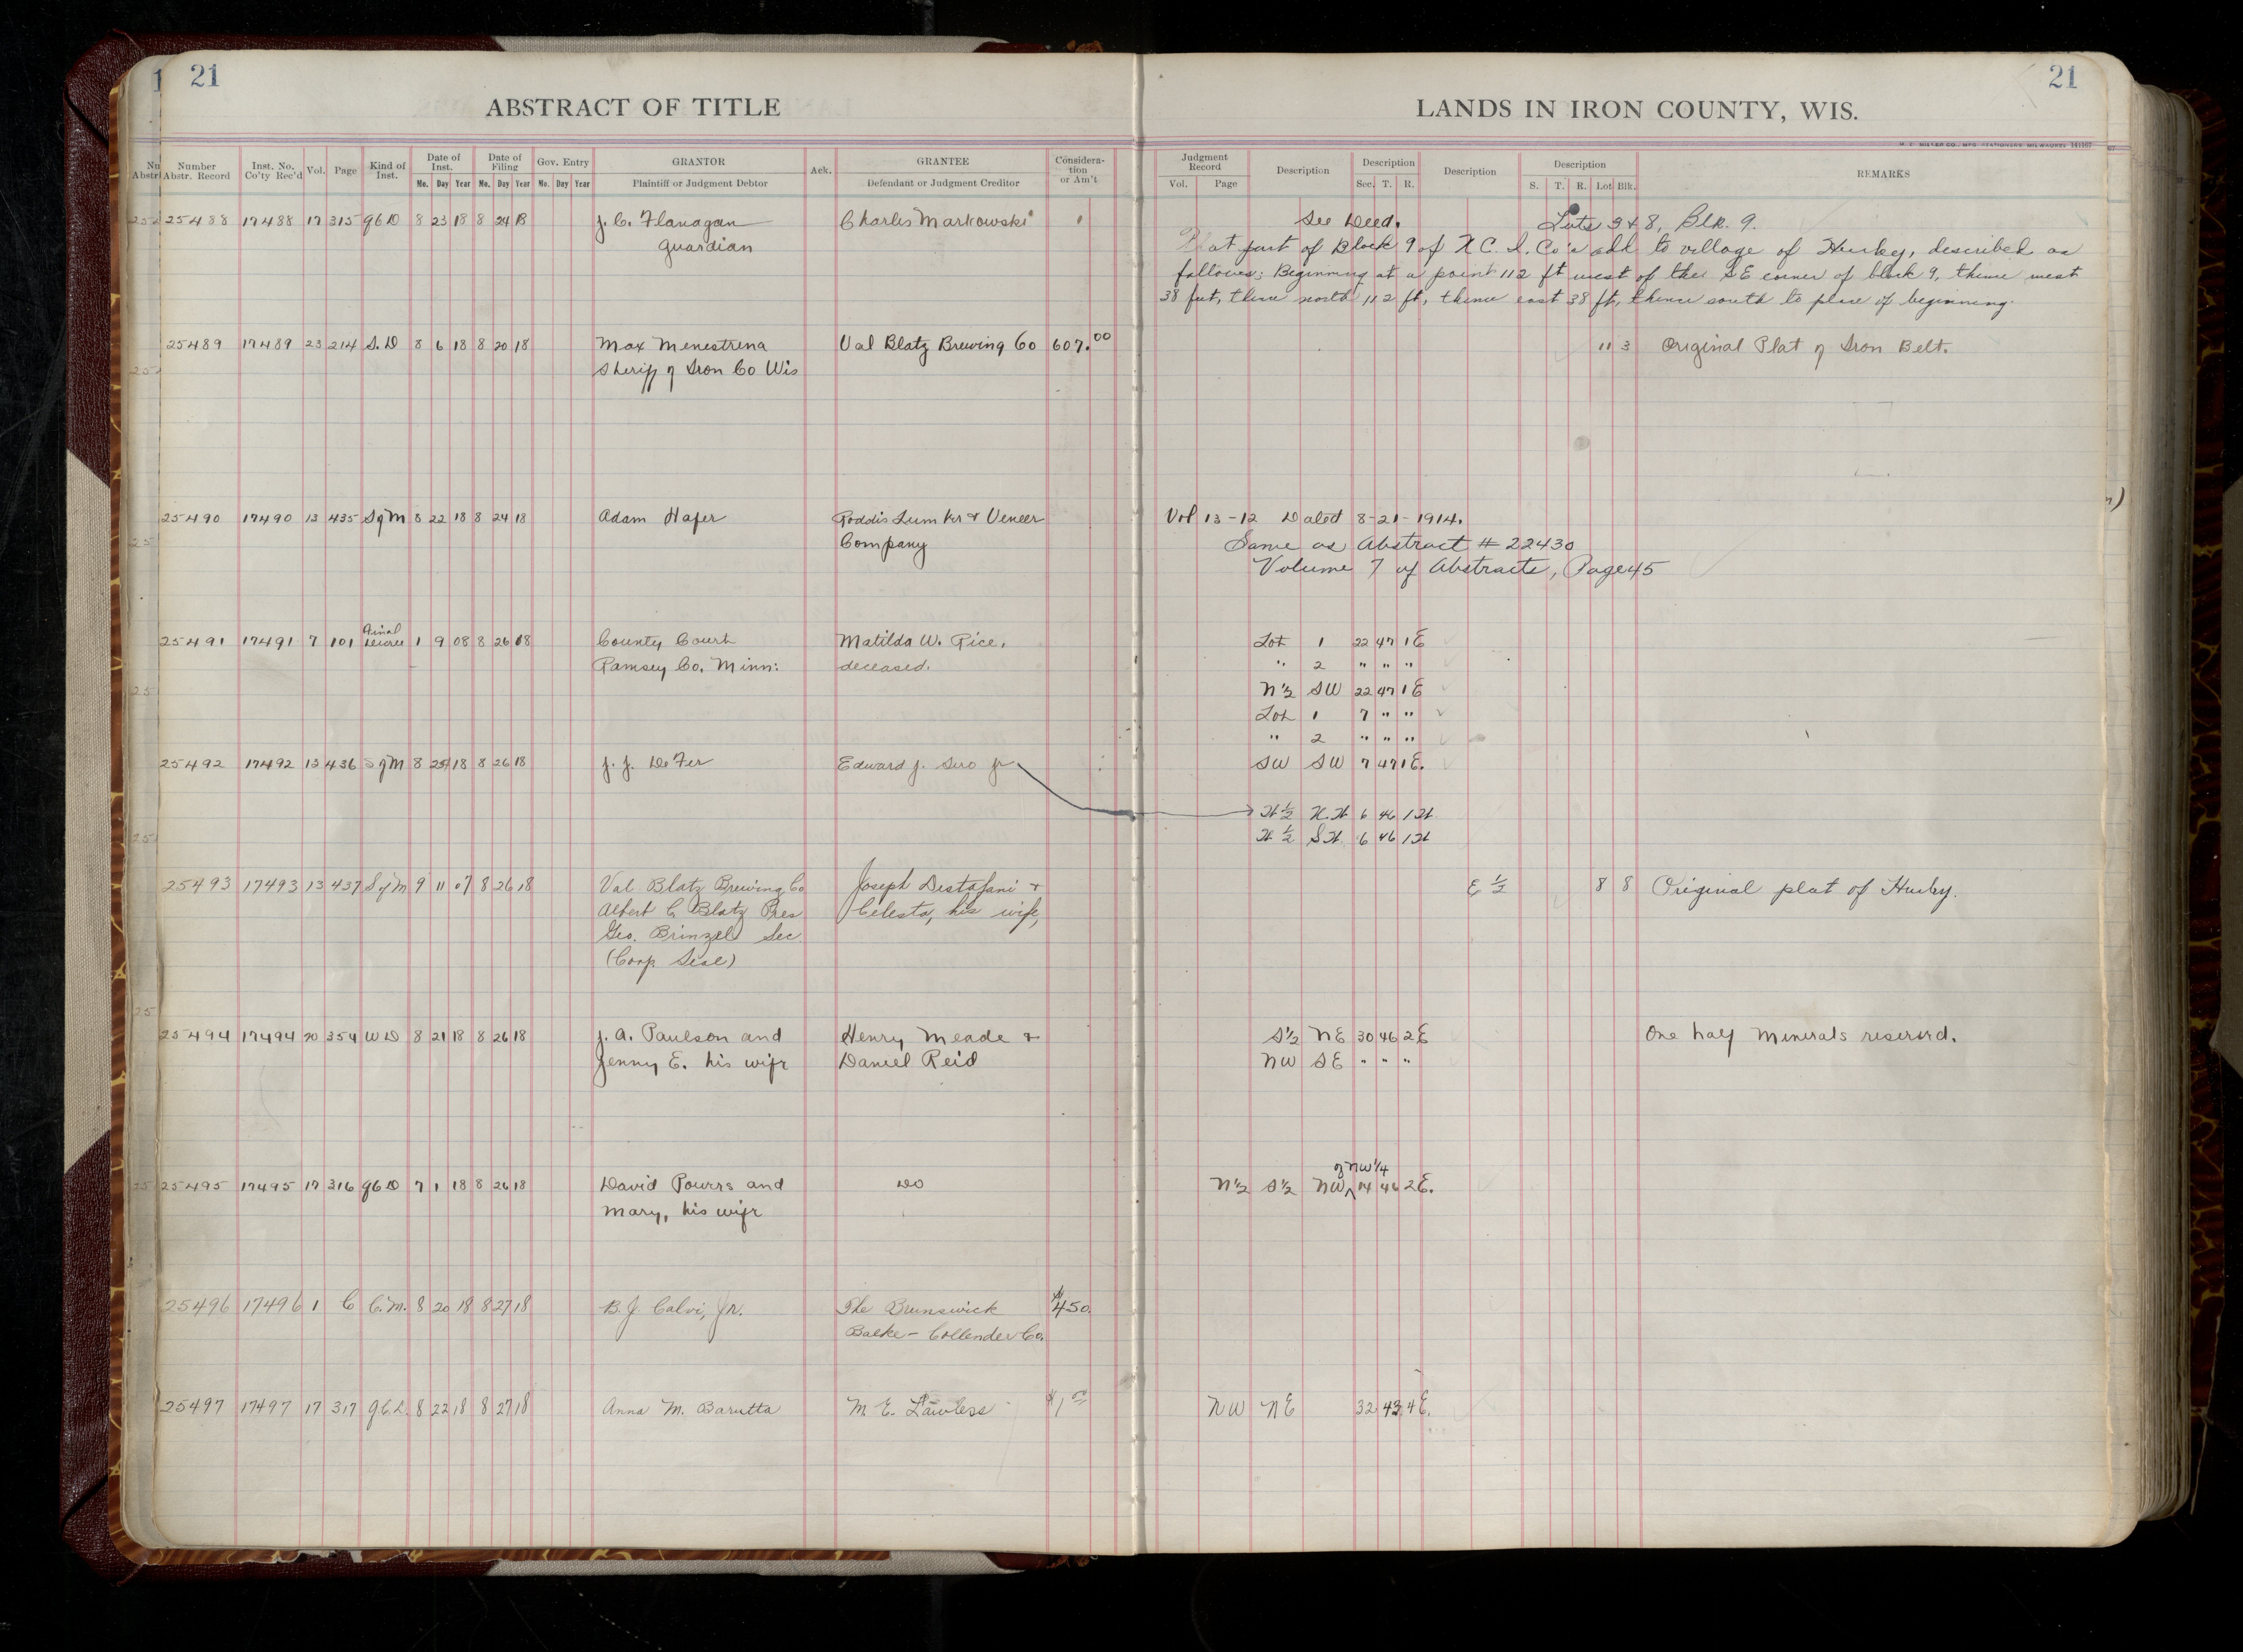 21
ABSTRACT OF TITLE
21
LANDS IN IRON COUNTY, WIS.
Number Abstr. Record | Inst. No. Co'ty Rec'd | Vol. | Page | Kind of Inst. | Date of Inst. Mo. Day Year | Date of Filing Mo. Day Year | Gov. Entry Mo. Day Year | GRANTOR Plaintiff or Judgment Debtor | Ack. | GRANTEE Defendant or Judgment Creditor | Considera-tion or Am't | Judgment Record Vol. Page | Description | Description Sec. T. R. | Description | Description S. T. R. Lot Blk. | REMARKS
25488 17488 17 315 QCD 8 23 18 8 24 18 J. C. Flanagan Charles Markowski See Deed. Lots 3 & 8, Blk. 9.
guardian
That part of Block 9 of N.C.I. Co's add to village of Hurley, described as
follows: Beginning at a point 112 ft west of the SE corner of block 9, thence west
38 feet, thence north 112 ft, thence east 38 ft, thence south to place of beginning.
25489 17489 23 214 S.D 8 6 18 8 20 18 Max Menestrina Val Blatz Brewing Co 607.00 11 3 Original Plat of Iron Belt.
Sheriff of Iron Co Wis
25490 17490 13 435 S of M 8 22 18 8 24 18 Adam Hafer Roddis Lumber & Veneer Vol 13-12 Dated 8-21-1914.
Company Same as Abstract # 22430
Volume 7 of Abstracts, Page 45
25491 17491 7 101 Final Decree 1 9 08 8 26 18 County Court Matilda W. Rice, Lot 1 22 47 1E
Ramsey Co. Minn: deceased. " 2 " " "
N½ SW 22 47 1E
Lot 1 7 " "
" 2 " " "
25492 17492 13 436 S of M 8 25 18 8 26 18 J. J. DeFer Edward J. Jr SW SW 7 47 1E.
W½ N.W 6 46 1W
W½ SW 6 46 1W
25493 17493 13 437 S of M 9 11 07 8 26 18 Val Blatz Brewing Co Joseph Distafani & E½ 8 8 Original plat of Hurley.
Albert C. Blatz Pres Celesta, his wife,
Geo. Brinzel Sec.
(Corp. Seal)
25494 17494 20 354 WD 8 21 18 8 26 18 J. A. Paulson and Henry Meade & S½ NE 30 46 2E One half minerals reserved.
Jenny E. his wife Daniel Reid NW SE " " "
of NW¼
25495 17495 17 316 QCD 7 1 18 8 26 18 David Powers and Do N½ S½ NW 14 46 2E.
Mary, his wife
25496 17496 1 C C.M. 8 20 18 8 27 18 B. J. Calvi, Jr. The Brunswick $450.
Balke - Collender Co.
25497 17497 17 317 Q.C.D. 8 22 18 8 27 18 Anna M. Barutta M. E. Lawless $1.00 NW NE 32 43 4E.